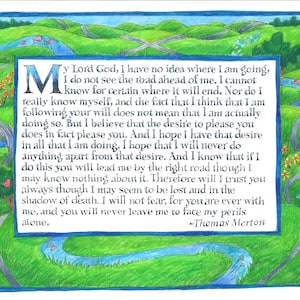 My Lord God, I have no idea where I am going,
I do not see the road ahead of me. I cannot
know for certain where it will end. Nor do I
really know myself, and the fact that I think that I am
following your will does not mean that I am actually
doing so. But I believe that the desire to please you
does in fact please you. And I hope I have that desire
in all that I am doing. I hope that I will never do
anything apart from that desire. And I know that if I
do this you will lead me by the right road though I
may know nothing about it. Therefore will I trust you
always though I may seem to be lost and in the
shadow of death. I will not fear, for you are ever with
me, and you will never leave me to face my perils
alone.
~Thomas Merton